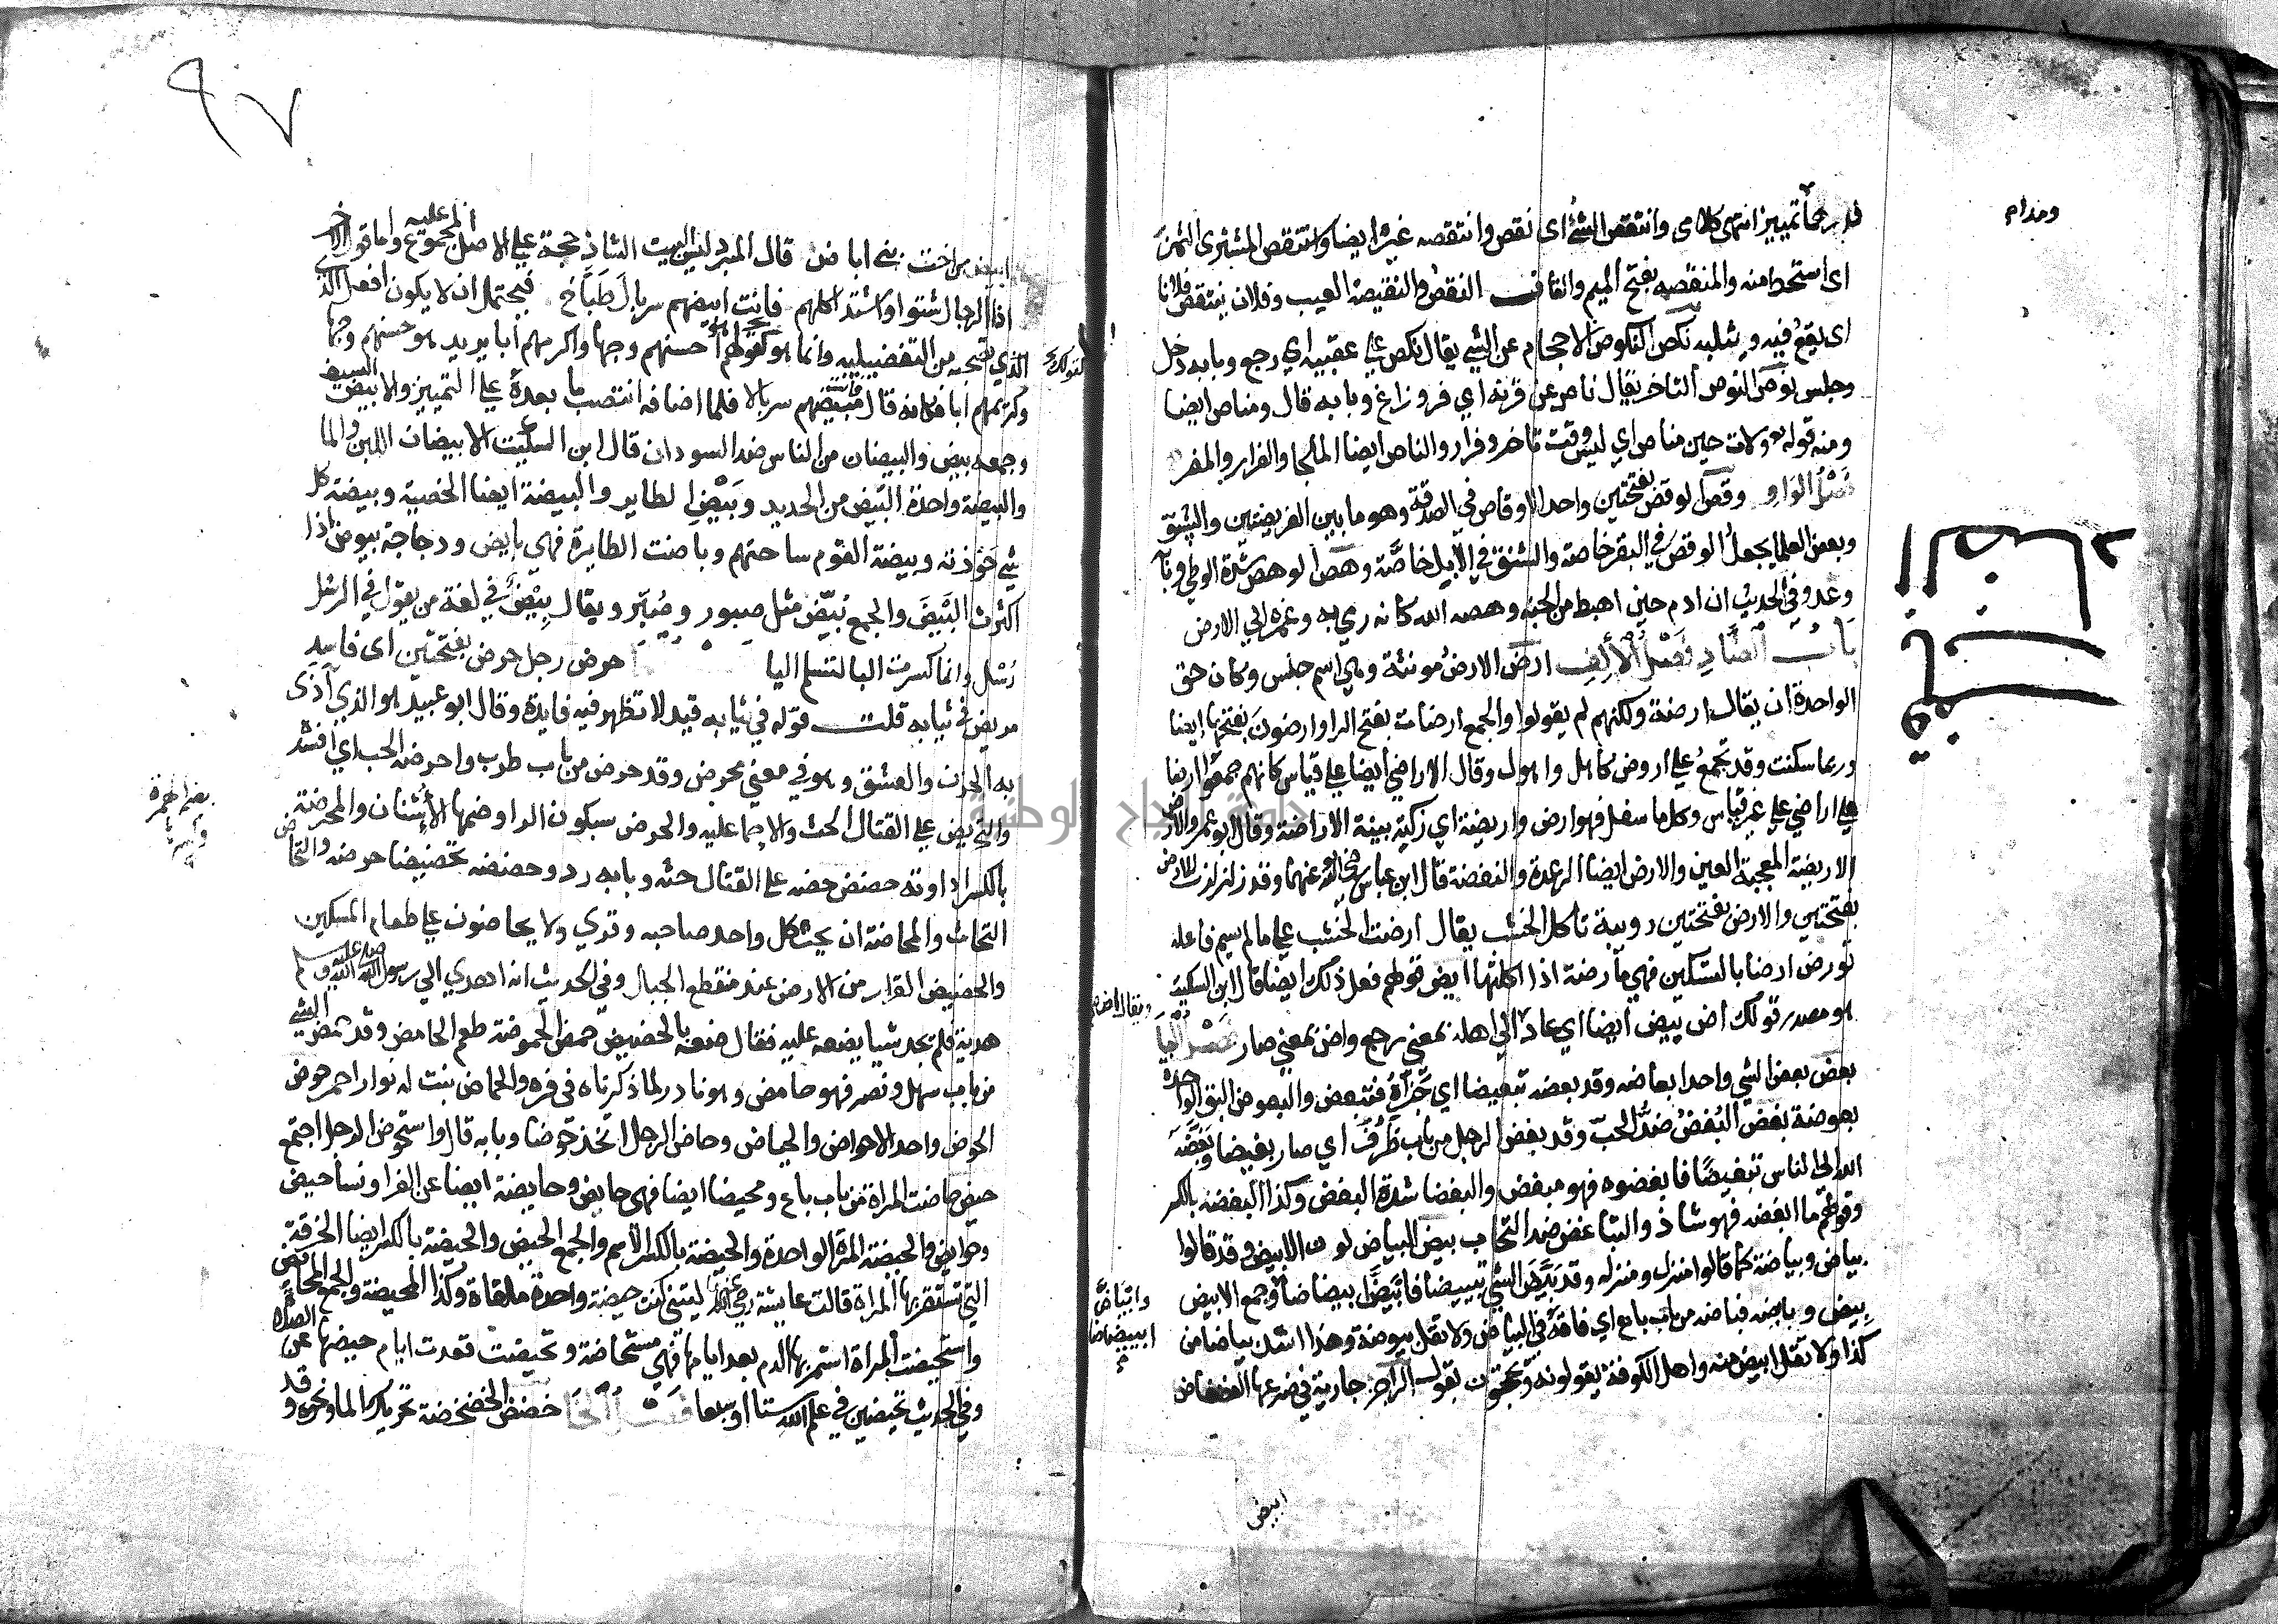 ومدام
قدر حمأ تمييز انتهى كلامى وانتقص الشئ اى نقص وانتقصه غيره ايضا وانتقص المشترى الثمن
اى استحط منه والمنقصه بفتح الميم والقاف النقص والنقيصة العيب وفلان ينتقص فلانا
اى يقع فيه ويثلبه نكص النكوص الاحجام عن الشي يقال نكص علي عقبيه اي رجع وبابه دخل
وجلس نوص النوص التاخر يقال ناص عن قرنه اي فر وزاغ وبابه قال ومناص ايضا
ومنه قوله تع ولات حين مناص اي ليس وقت تاخر وفرار والناص ايضا الملجا والفرار والمفر
فصل الواو وقص الوقص بفتحتين واحد الاوقاص في الصدقة وهو ما بين الفريضتين والشنق
وبعض العلما يجعل الوقص في البقر خاصة والشنق في الابل خاصة وهص الوهص شدة الوطي وبابه
وعد وفي الحديث ان ادم حين اهبط من الجنة وهصه الله كانه رمي به وغمزه الي الارض
الضاد
باب الضاد فصل الألف ارض الارض مونثة وهي اسم جنس وكان حق
الواحدة ان يقال ارضة ولكنهم لم يقولوا والجمع ارضات بفتح الرا وارضون بفتحها ايضا
وربما سكنت وقد تجمع علي اروض كاهل واهول وقال الاراضي ايضا علي قياس كانهم جمعوا ارضا
علي اراضي علي غير قياس وكل ما سفل فهو ارض واريضة اي زكية بينة الاراضة وقال ابو عمرو الارض
الاريضة المعجبة العين والارض ايضا الرعدة والنفضة قال ابن عباس رضي الله عنهما وقد زلزلت الارض
بفتحتين والارض بفتحتين دويبة تاكل الخشب يقال ارضت الخشب علي ما لم يسم فاعله
تورض ارضا بالتسكين فهي مأرضة اذا اكلتها ايض قولهم فعل ذلك ايضا قال ابن السكيت
هو مصدر قولك اض ييض ايضا اي عاد الي اهله بمعني رجع واض بمعني صار فصل البا
بعض بعض الشي واحد ابعاضه وقد بعضه تبعيضا اي جزأه فتبعض والبعوض البق الواحدة
بعوضة بغض البغض ضد الحب وقد بغض الرجل من باب ظرف اي صار بغيضا وبغضه
الله الي الناس تبغيضا فابغضوه فهو مبغض والبغضا شدة البغض وكذا البغضة بالكسر
وقولهم ما ابغضه فهو شاذ والتباغض ضد التحاب بيض البياض لون الابيض وقد قالوا
بياض وبياضة كما قالوا منزل ومنزلة وقد بيض الشي تبييضا فابيض ابيضاضا وجمع الابيض
وابياض
ابييضاضا
بيض وبايضه فباضه من باب باع اي فاقه في البياض ولا تقل يبوضه وهذا اشد بياضا من
كذا ولا تقل ابيض منه واهل الكوفة يقولونه ويحتجون بقول الراجز جارية في درعها الفضفاض
ابيض
٩٧
ابيض من اخت بني اباض قال المبرد ليس البيت الشاذ حجة علي الاصل المجموع عليه واما قول الاخر
اذا الرجال شتوا واشتد اكلهم فانت ابيضهم سربال طباخ فيحتمل ان لا يكون افعل الذي
الذي تصحبه من التفضيلية وانما هو كقولهم احسنهم وجها واكرمهم ابا يريد هو حسنهم وجها
لقولك
وكريمهم ابا فكانه قال مبيضهم سربالا فلما اضافه انتصب ما بعده علي التمييز والابيض السيف
وجمعه بيض والبيضان من الناس ضد السودان قال ابن السكيت الابيضان اللبن والما
والبيضة واحدة البيض من الحديد وبيض الطاير والبيضة ايضا الخصية وبيضة كل
شي حوزته وبيضة القوم ساحتهم وباضت الطايرة فهي بايض ودجاجة بيوض اذا
اكثرت البيض والجمع بيض مثل صبور وصبر ويقال بيض في لغة من يقول في الرسل
رسل وانما كسرت البا لتسلم اليا حرض رجل حرض بفتحتين اى فاسد
مريض في ثيابه قلت قوله في ثيابه قيد لا تظهر فيه فايدة وقال ابو عبيد هو الذي اذى
به الحزن والعشق وهو في معني محرض وقد حرض من باب طرب واحرضه الحب اي افسد
والتحريض علي القتال الحث والاحما عليه والحرض بسكون الرا وضمها الأشنان والمحرضة
بضم الهمزة
بالكسر اداوته حضض حضه علي القتال حثه وبابه رد وحضضه تحضيضا حرضه والتحاض
التحاث والمحاضة ان يحث كل واحد صاحبه وقري ولا يحاضون علي طعام المسكين
والحضيض القرار من الارض عند منقطع الجبال وفي الحديث انه اهدي الي رسول الله صلي الله عليه وسلم
هدية فلم يجد شيا يضعه عليه فقال ضعه بالحضيض حمض الحموضة طعم الحامض وقد حمض الشي
من باب سهل ونصر فهو حامض وهو نادر لما ذكرناه في فره والحماض نبت له نوار احمر حوض
الحوض واحد الاحواض والحياض وحاض الرجل اتخذ حوضا وبابه قال واستحوض الرجل اجتمع
حيض حاضت المراة من باب باع ومحيضا ايضا فهي حايض وحايضة ايضا عن الفرا ونسا حيض
وحوايض والحيضة المرة الواحدة والحيضة بالكسر الاسم والجمع الحيض والحيضة بالكسر ايضا الخرقة
التي تستثفر بها المراة قالت عايشة رضي الله عنها ليتني كنت حيضة واحدة ملقاة وكذا المحيضة والجمع المحايض
واستحيضت المراة استمر بها الدم بعد ايامها فهي مستحاضة وتحيضت قعدت ايام حيضها عن الصلاة
وفي الحديث تحيضين في علم الله ستا او سبعا فصل الخا خضض الخضخضة تحريك الما ونحوه وقد